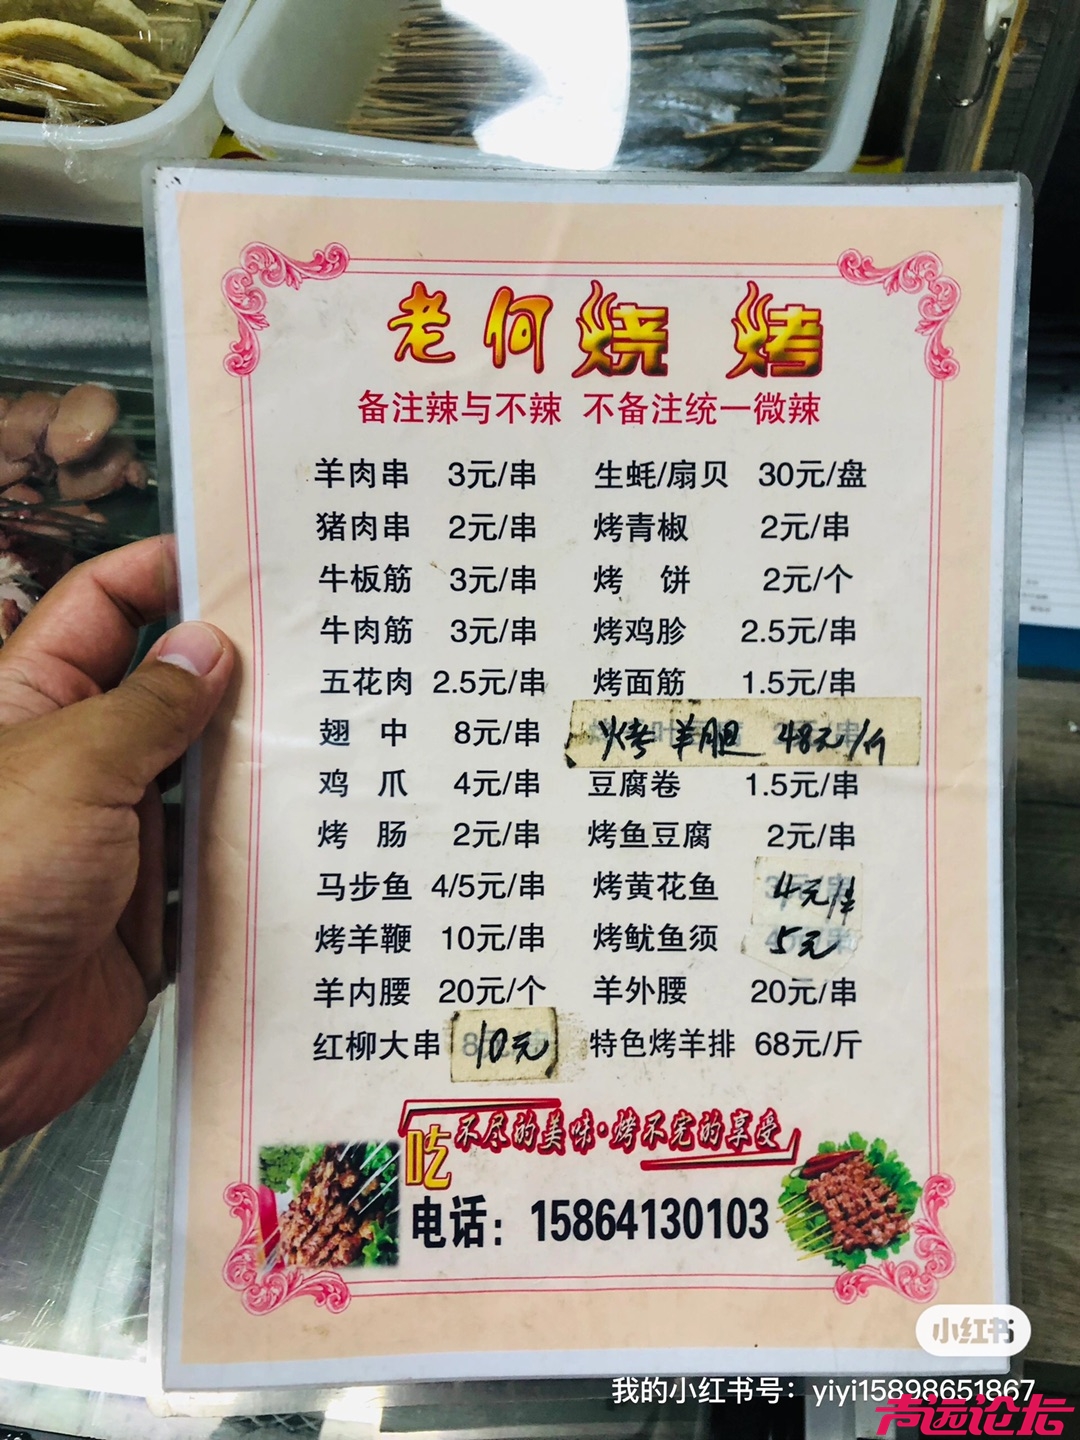 老何烧烤
备注辣与不辣 不备注统一微辣
羊肉串 3元/串 生蚝/扇贝 30元/盘
猪肉串 2元/串 烤青椒 2元/串
牛板筋 3元/串 烤饼 2元/个
牛肉筋 3元/串 烤鸡胗 2.5元/串
五花肉 2.5元/串 烤面筋 1.5元/串
翅中 8元/串 烤羊胆 48元/斤
鸡爪 4元/串 豆腐卷 1.5元/串
烤肠 2元/串 烤鱼豆腐 2元/串
马步鱼 4/5元/串 烤黄花鱼 4元/串
烤羊鞭 10元/串 烤鱿鱼须 5元
羊内腰 20元/个 羊外腰 20元/串
红柳大串 10元 特色烤羊排 68元/斤
吃不尽的美味·烤不完的享受
电话：15864130103
小红书
我的小红书号：yiyi15898651867
声远论坛